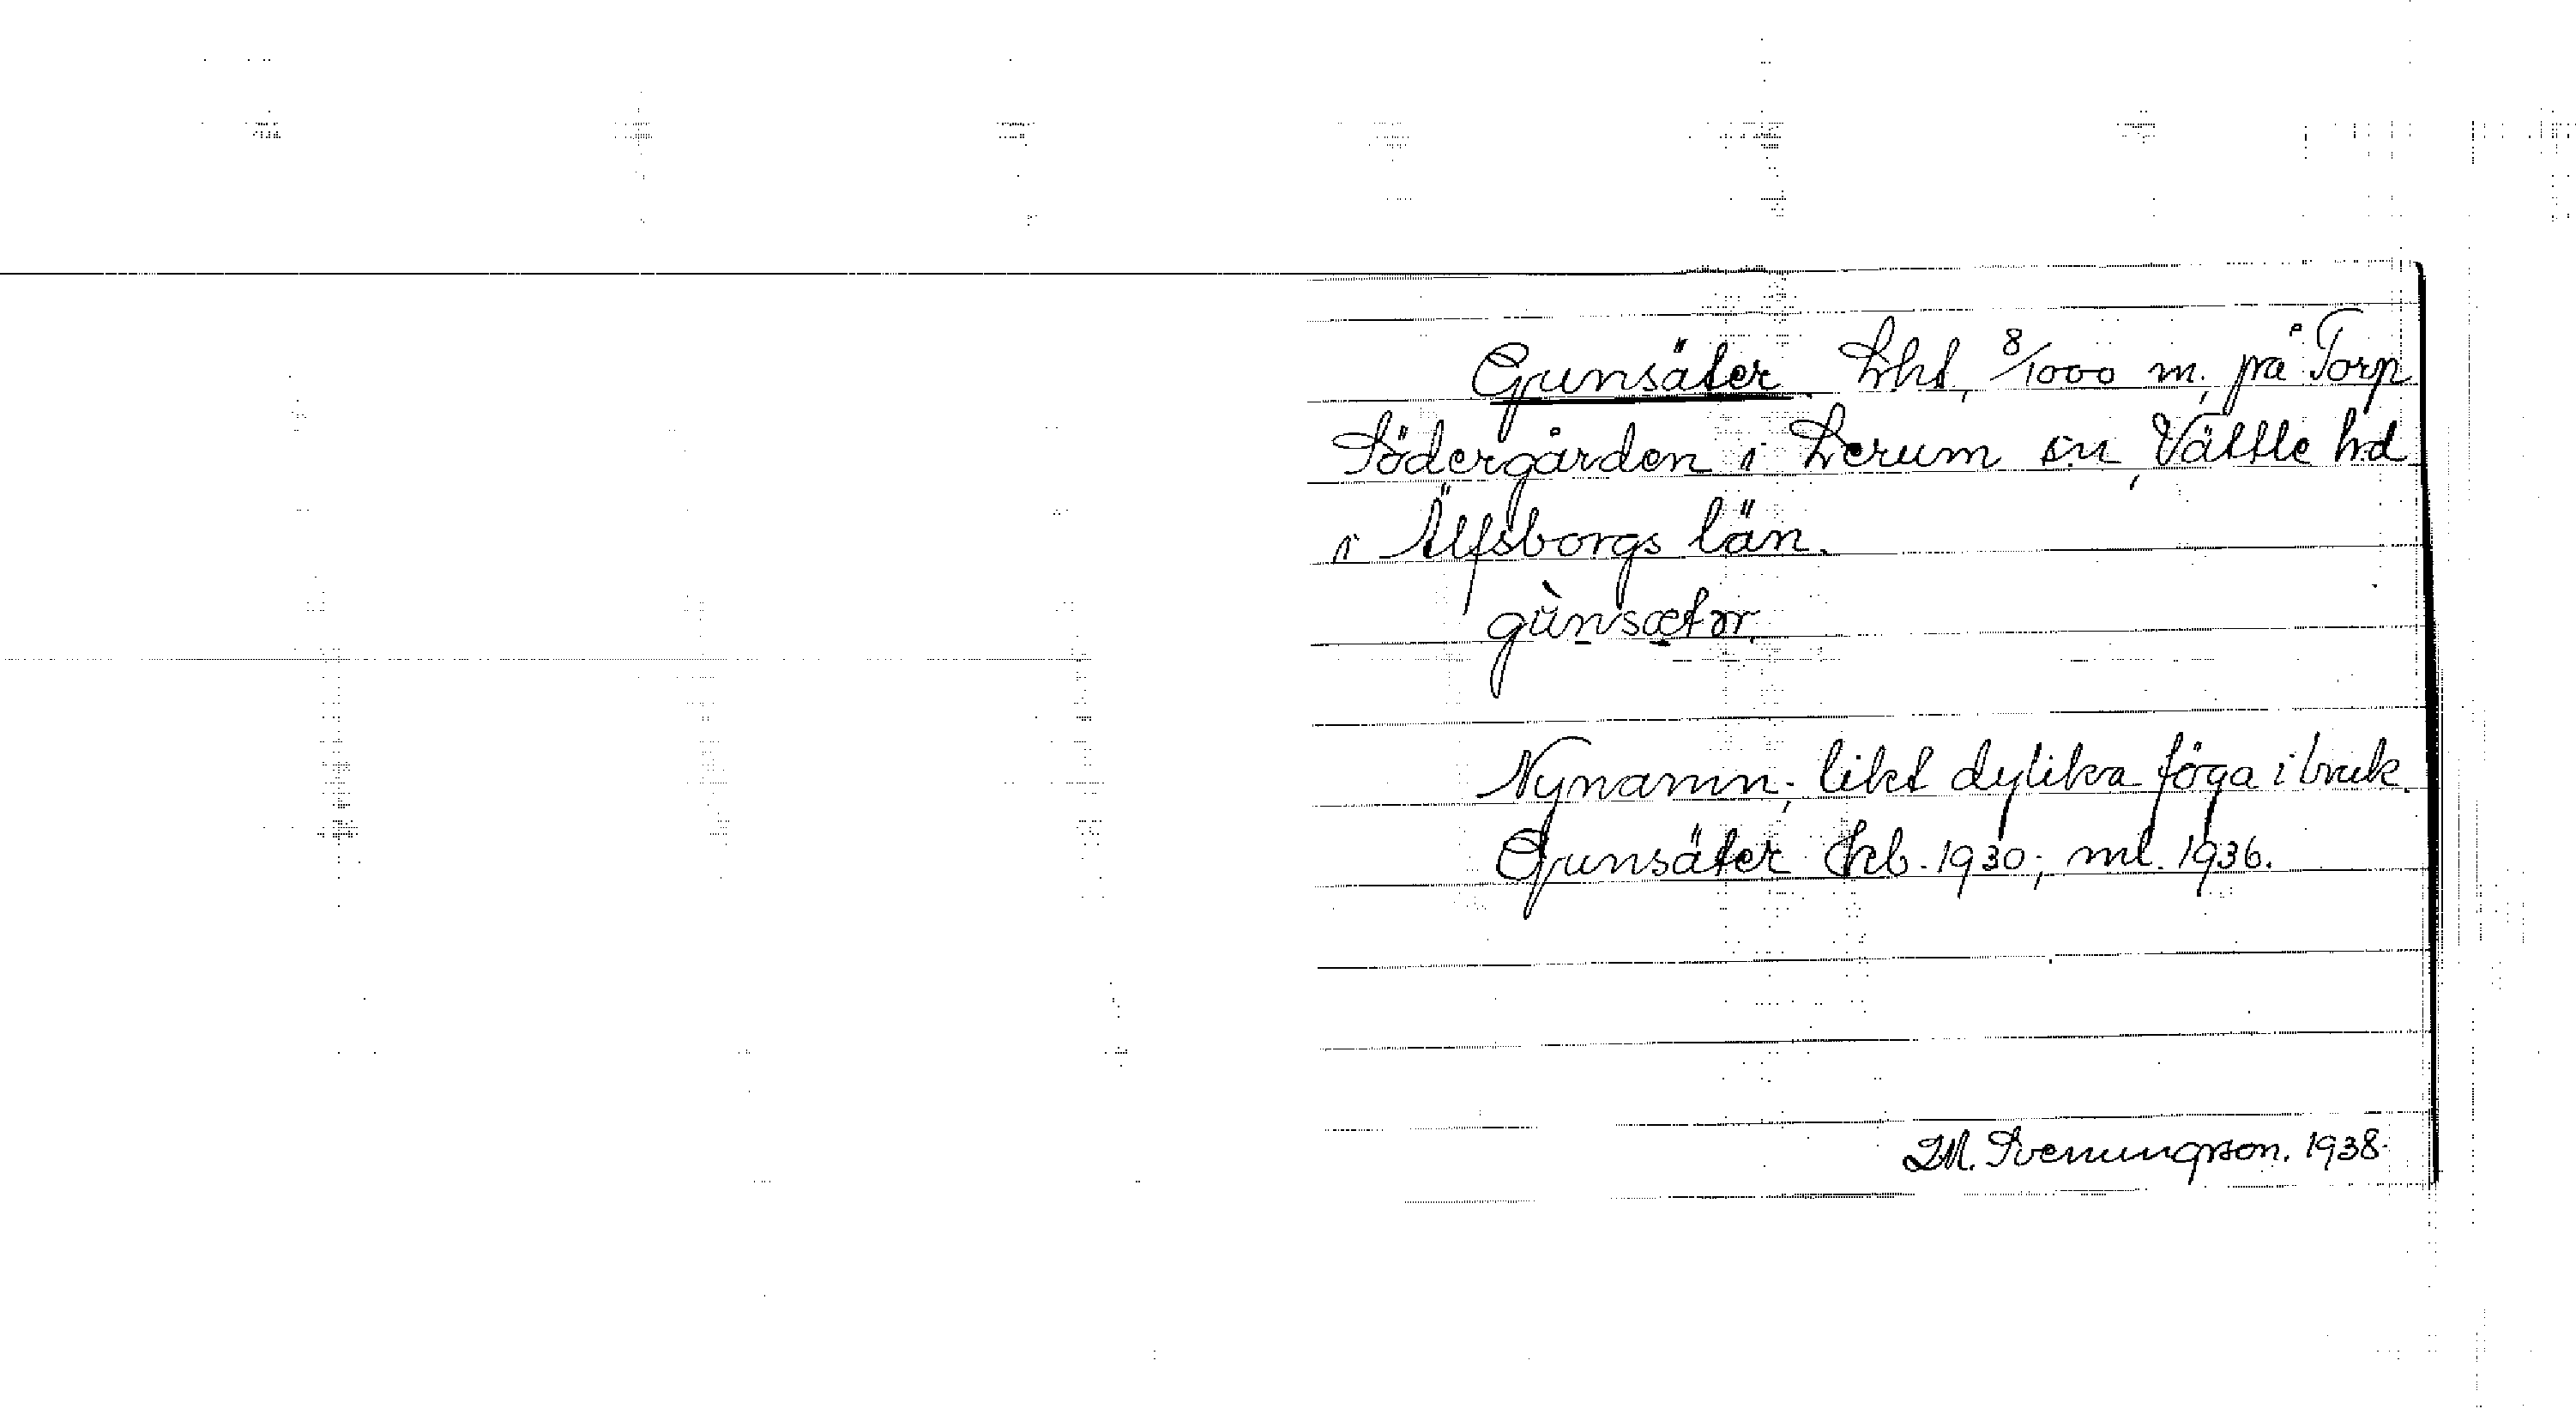 Gunsäter. Lht, 8/1000 m, på Torp
Södergården i Lerum sn, Vättle hd
i Älfsborgs län.
gùnsætər.
Nynamn; likt dylika föga i bruk.
Gunsäter Jrb. 1930; ml. 1936.
M. Svenungsson. 1938.